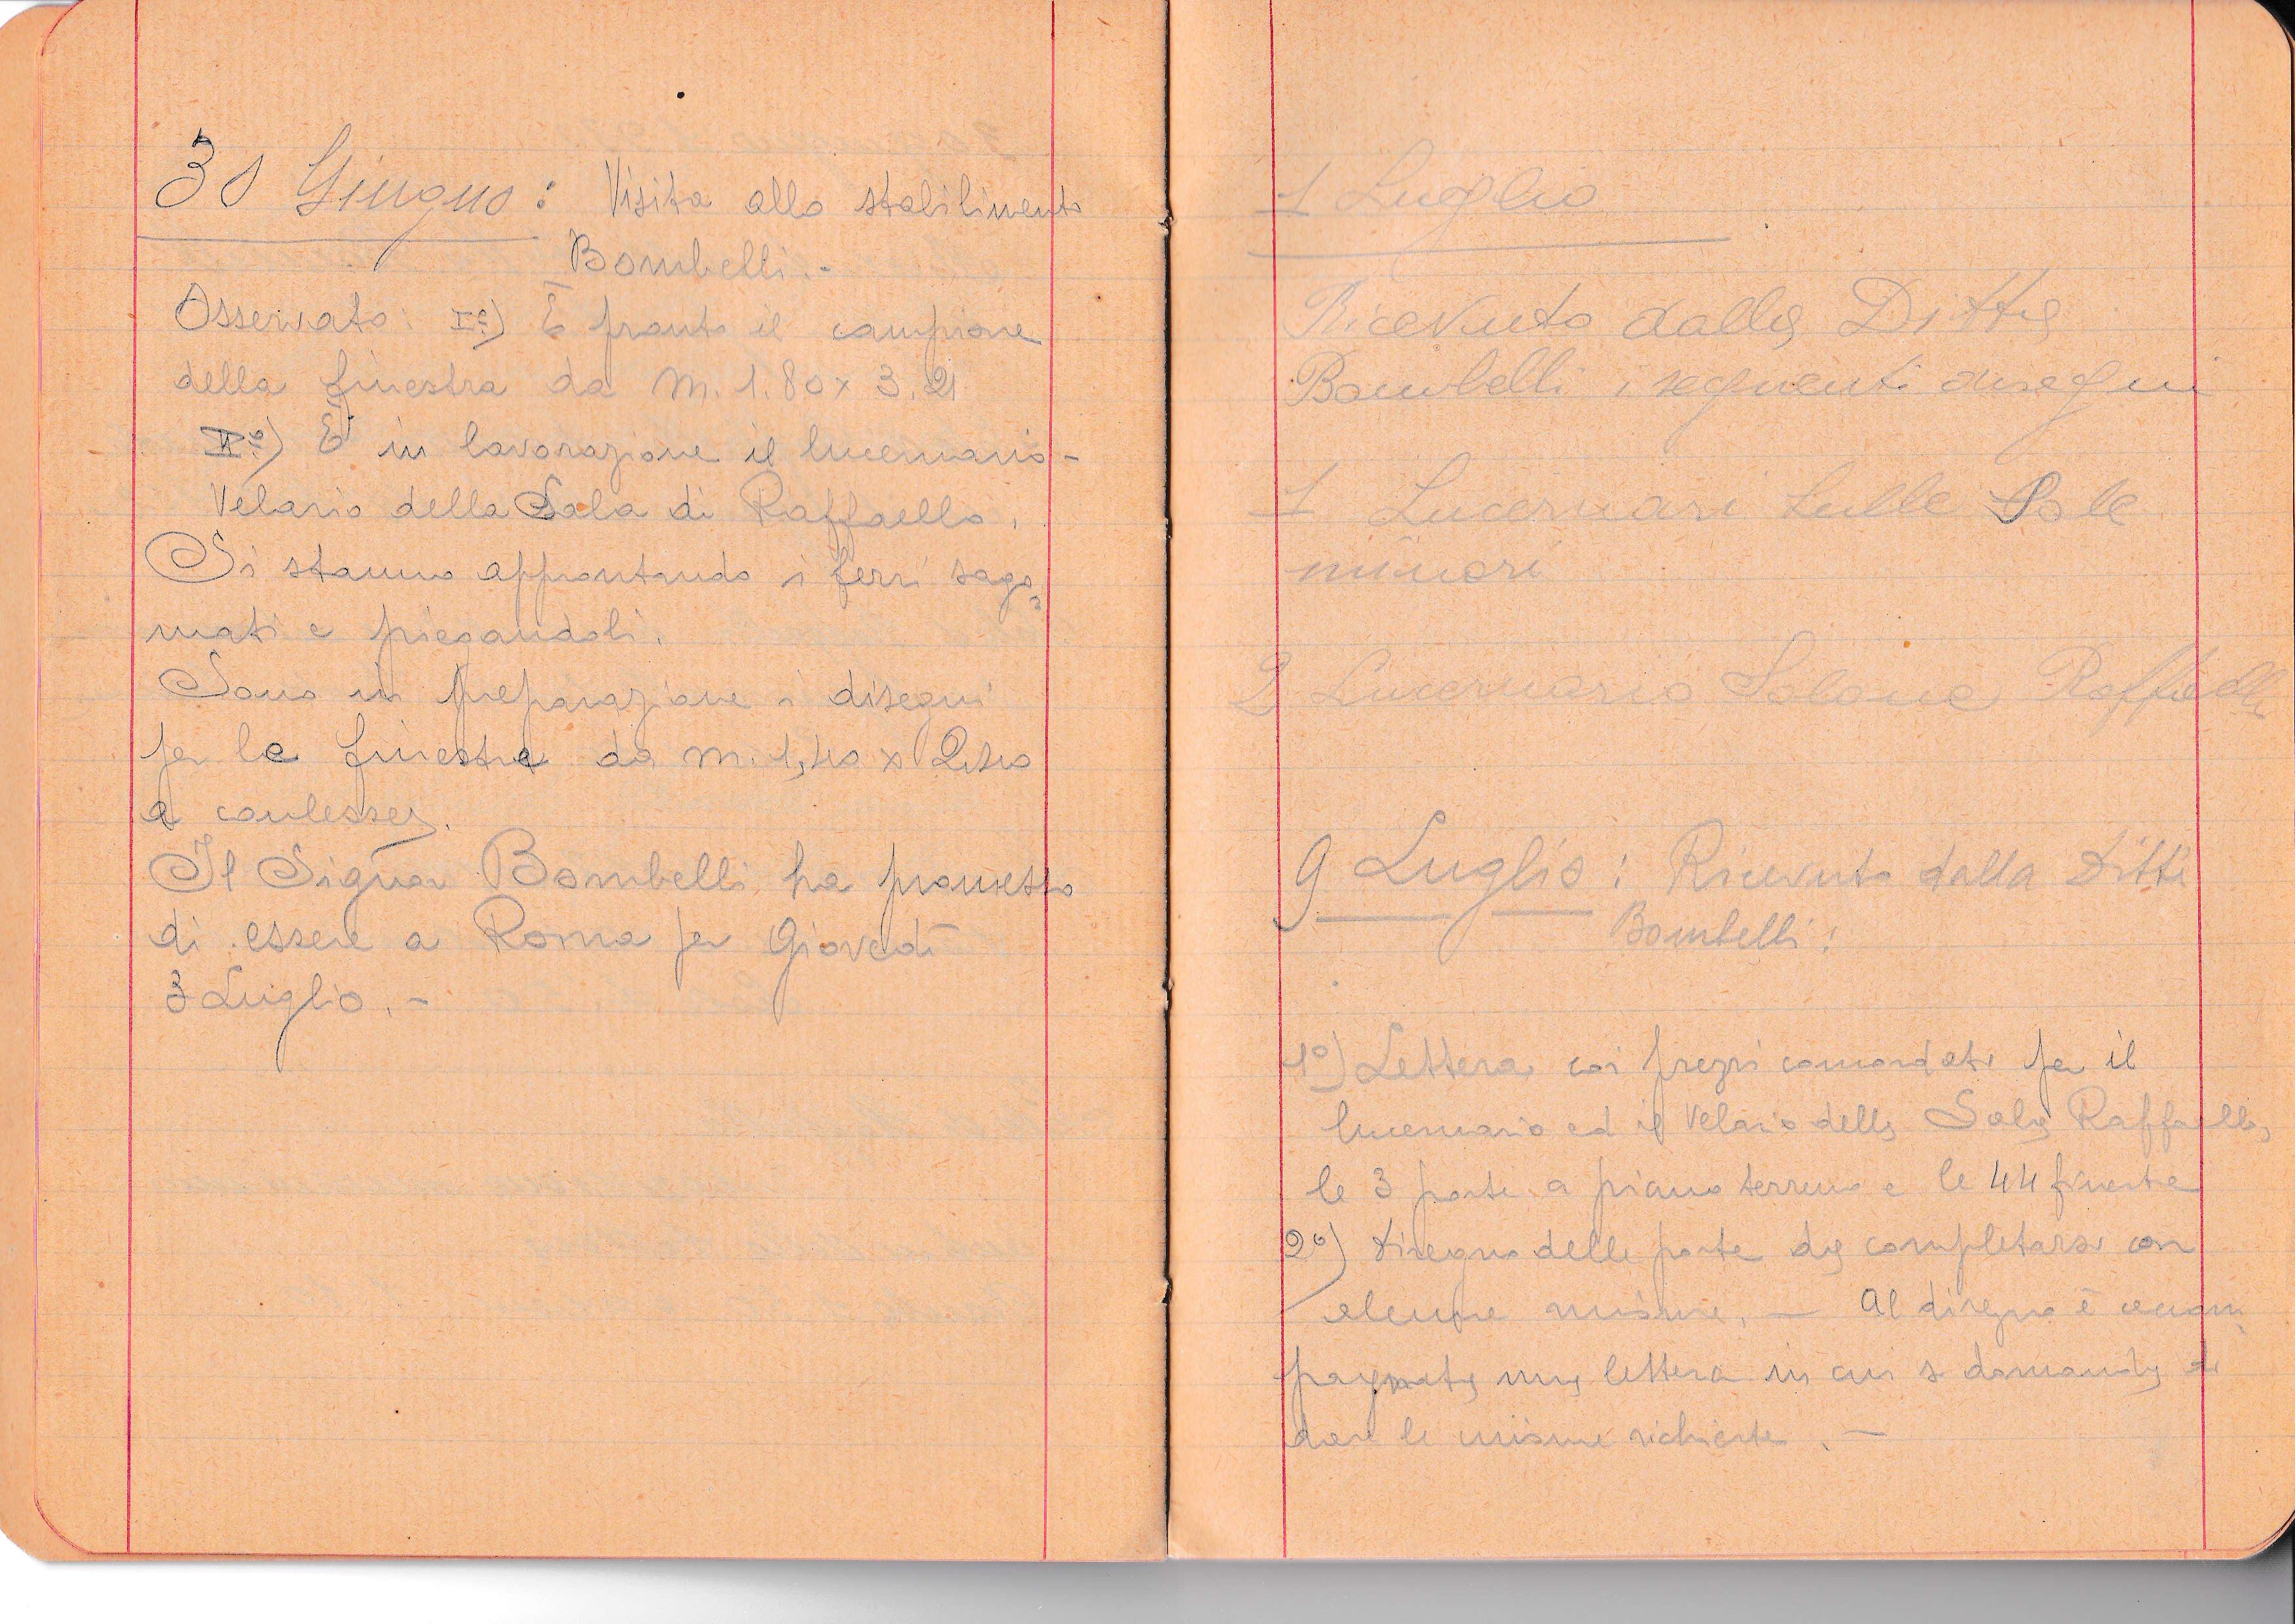 30 Giugno: Visita allo stabilimento
Bombelli.-
Osservato: I°) È pronto il campione
della finestra da m. 1.80 x 3.21
II°) È in lavorazione il lucernario-
Velario della Sala di Raffaello.
Si stanno approntando i ferri sago-
mati e piegandoli.
Sono in preparazione i disegni
per le finestre da m. 1,40 x
a
Il Signor Bombelli ha promesso
di essere a Roma per Giovedì
3 Luglio.-
1 Luglio
Ricevuto dalla Ditta
Bombelli i seguenti disegni
1 Lucernari sulle Sale
minori
2 Lucernario Salone Raffaello
9 Luglio: Ricevuto dalla Ditta
Bombelli:
1°) Lettera coi prezzi concordati per il
lucernario ed il Velario della Sala Raffaello,
le 3 porte a piano terreno e le 44 finestre
2°) Disegno delle porte da completarsi con
alcune misure. — Al disegno è accom-
pagnata una lettera in cui si domanda di
dare le misure richieste. —